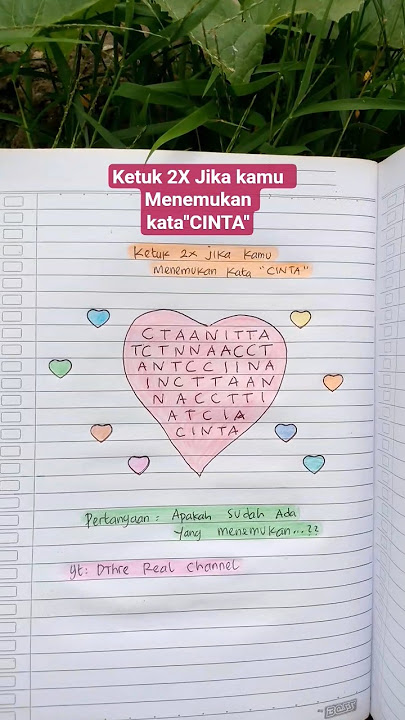 Ketuk 2X Jika kamu
Menemukan
kata"CINTA"
Ketuk 2x Jika kamu
Menemukan Kata "CINTA"
CTAANITTA
TCTNNAACCT
ANTCCIINA
INCTTAAN
NACCTTI
ATCIA
CINTA
Pertanyaan : Apakah Sudah Ada
Yang menemukan...??
yt: DThre Real Channel
BOSS